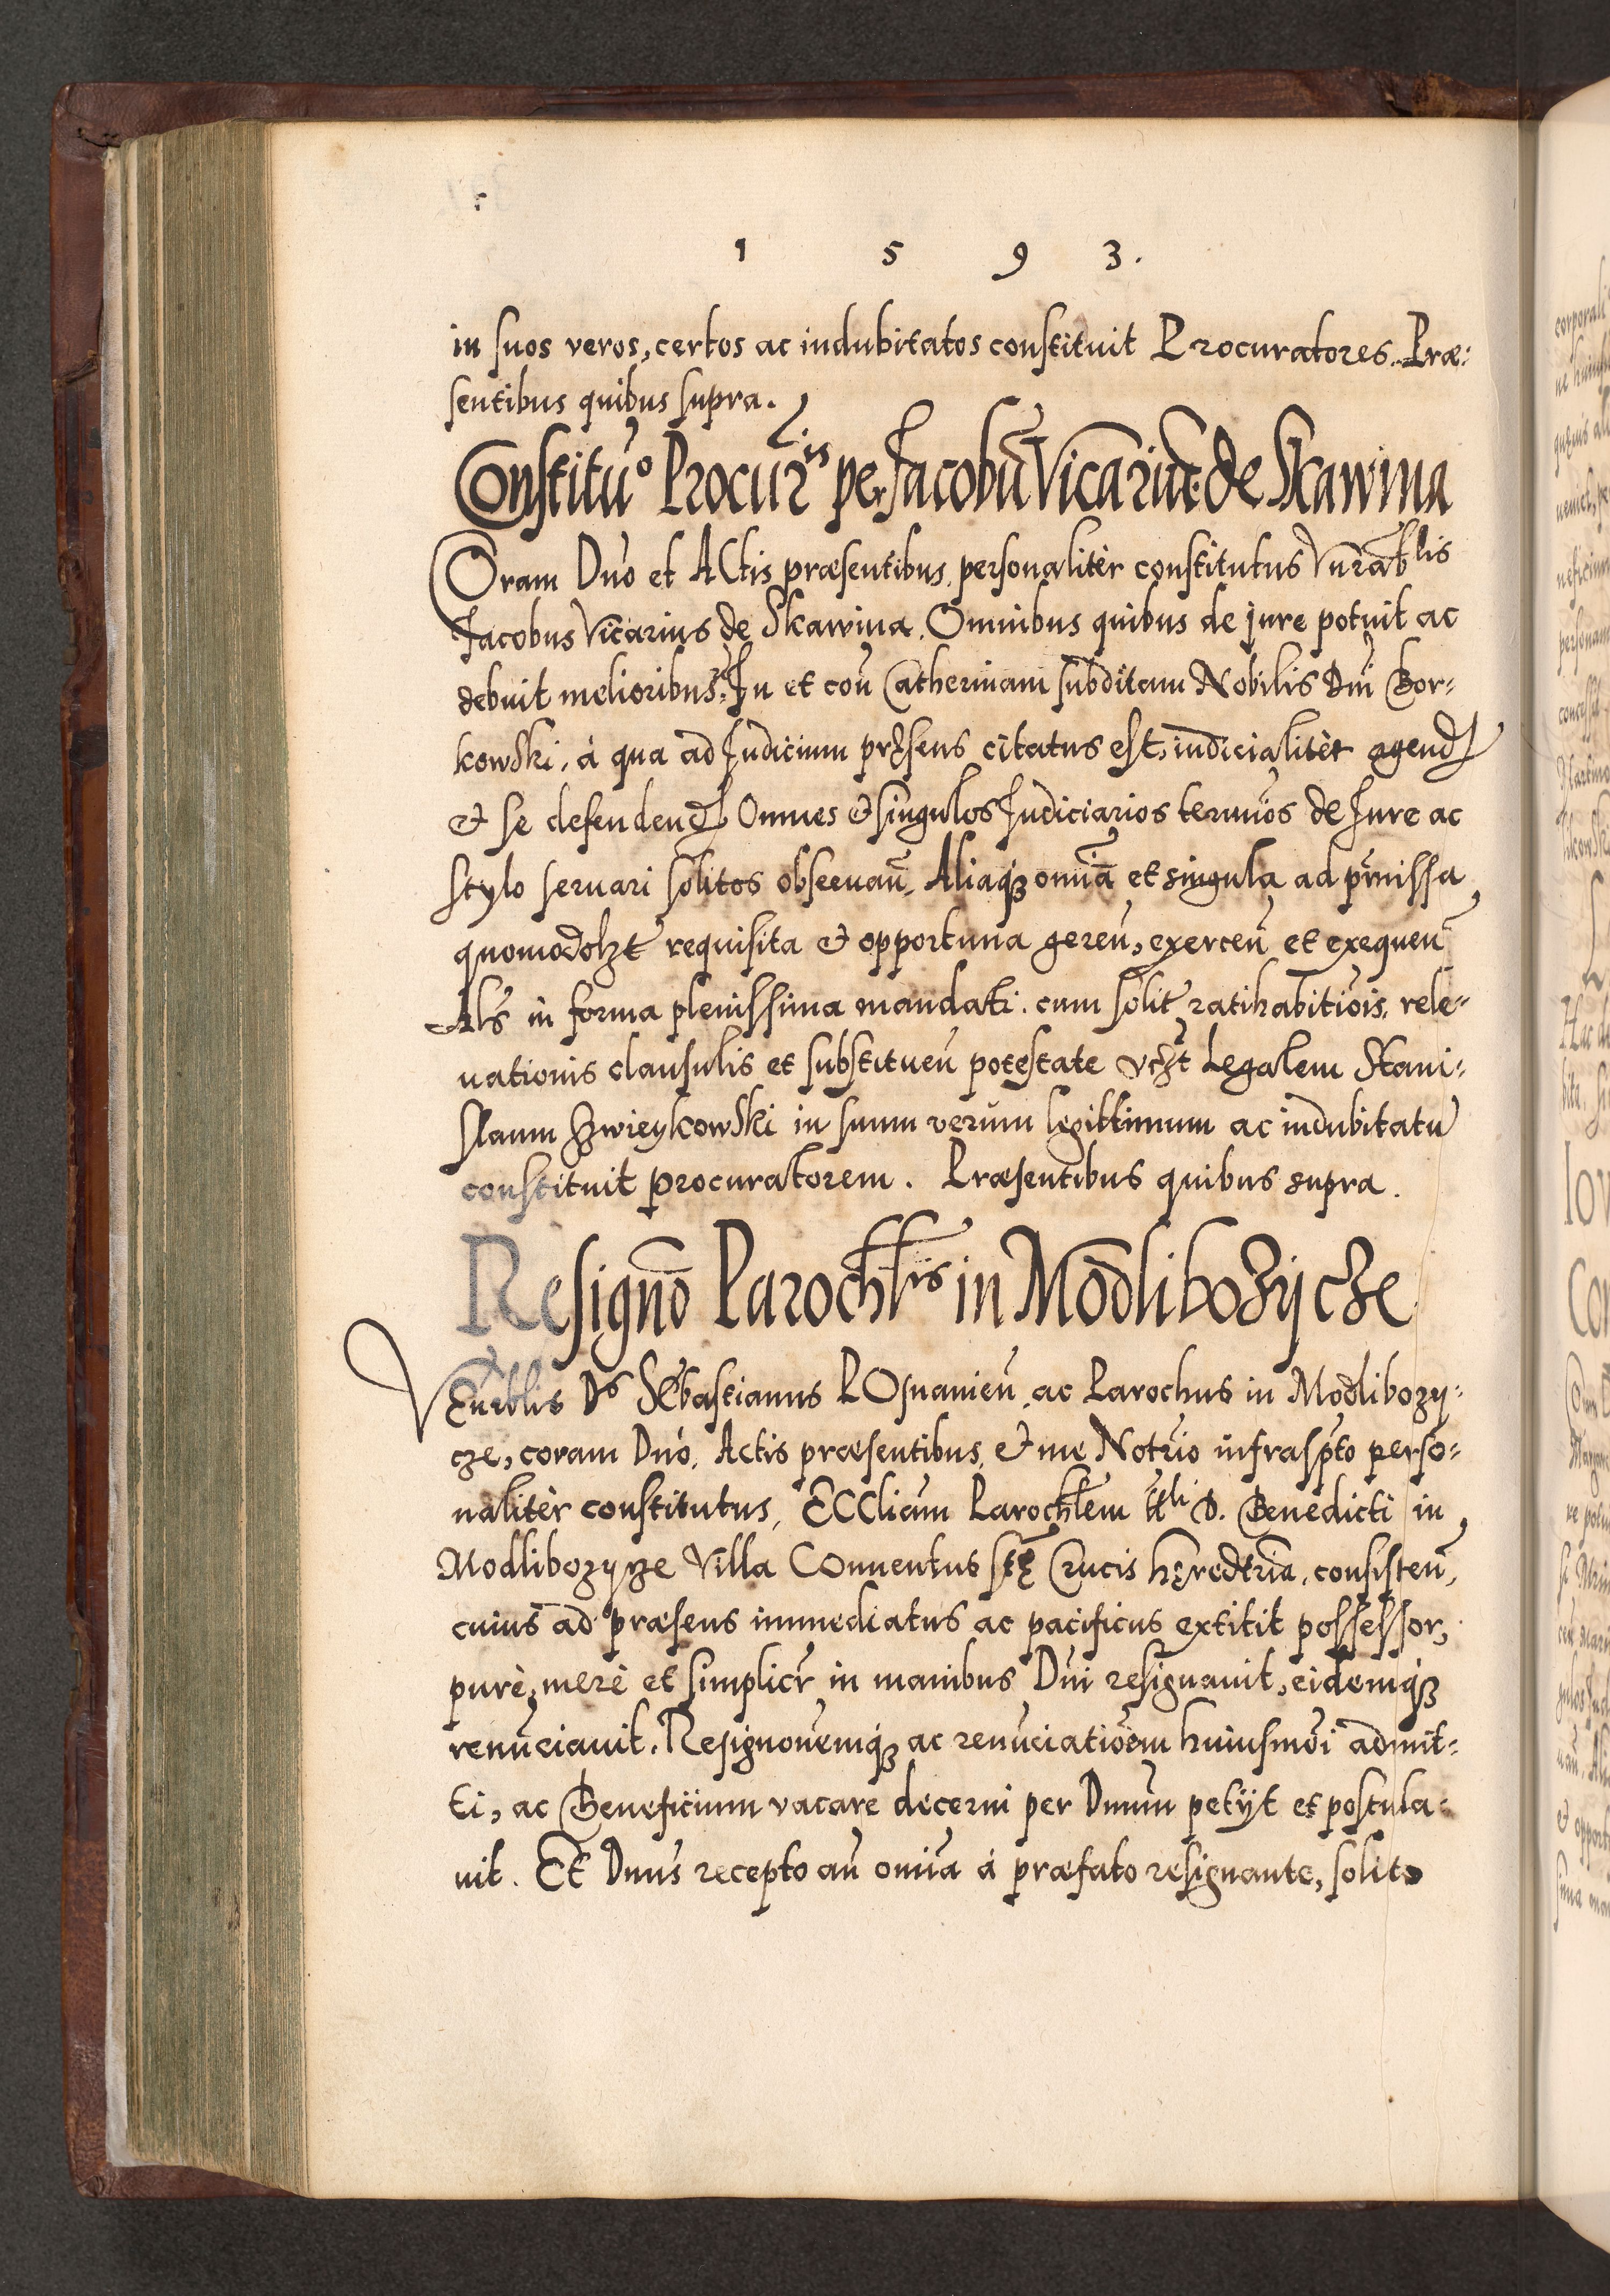 1 5 9 3.
in suos veros, certos ac indubitatos constituit Procuratores. Præ:
sentibus quibus supra.
Constitu͠o Procur͠is per Jacobū Vicariū de Skawina
Coram Dn͠o et Actis præsentibus personalitèr constitutus Vnrablis
Jacobus Vicarius de Skawina. Omnibus quibus de jure potuit ac
debuit melioribus. In et con͠ Catherinam subditam Nobilis Dn͠i Bor-
kowski, à qua ad Judicium pręsens citatus est, iudicialitèr agend͠
& se defendend͠ Omnes & singulos Judiciarios termin͠os de Jure ac
stylo seruari solitos obseruan͠. Aliaq₃ omnia et singula ad pr͠missa
quomodolzt requisita & opportuna geren͠, exercen͠ et exequen͠
Als͠ in forma plenissima mandati. cum solit͠ ratihabition͠is, rele-
uationis clausulis et substituen͠ potestate vcz͠t Legalem Stani-
slaum Zwieykowski in suum verum legittimum ac indubitatū
constituit procuratorem. Præsentibus quibus supra.
Resign͠o Paroch͠lis in Modlibozycze
Venrblis Ds Sebastianus POsnanien͠, ac Parochus in Modlibozy-
cze, coram Dn͠o, Actis præsentibus, & me Notr͠io infrasp͠to perso-
nalitèr constitutus, ECCliam Paroch͠lem tt͠li D. Benedicti in
Modlibozycze Villa Conuentus st͠ę Crucis hęredtria, consisten͠,
cuius ad præsens immediatus ac pacificus extitit possessor,
purè, merè et simplicr͠ in manibus Dn͠i resignauit, eidemq₃
renūciauit. Resignon͠emq₃ ac renūciation͠em huiusmo͠i admit-
ti, ac Beneficium vacare decerni per Dnūm petijt et postula-
uit. Et Dnus͠ recepto an͠ omn͠ia à præfato resignante, solito